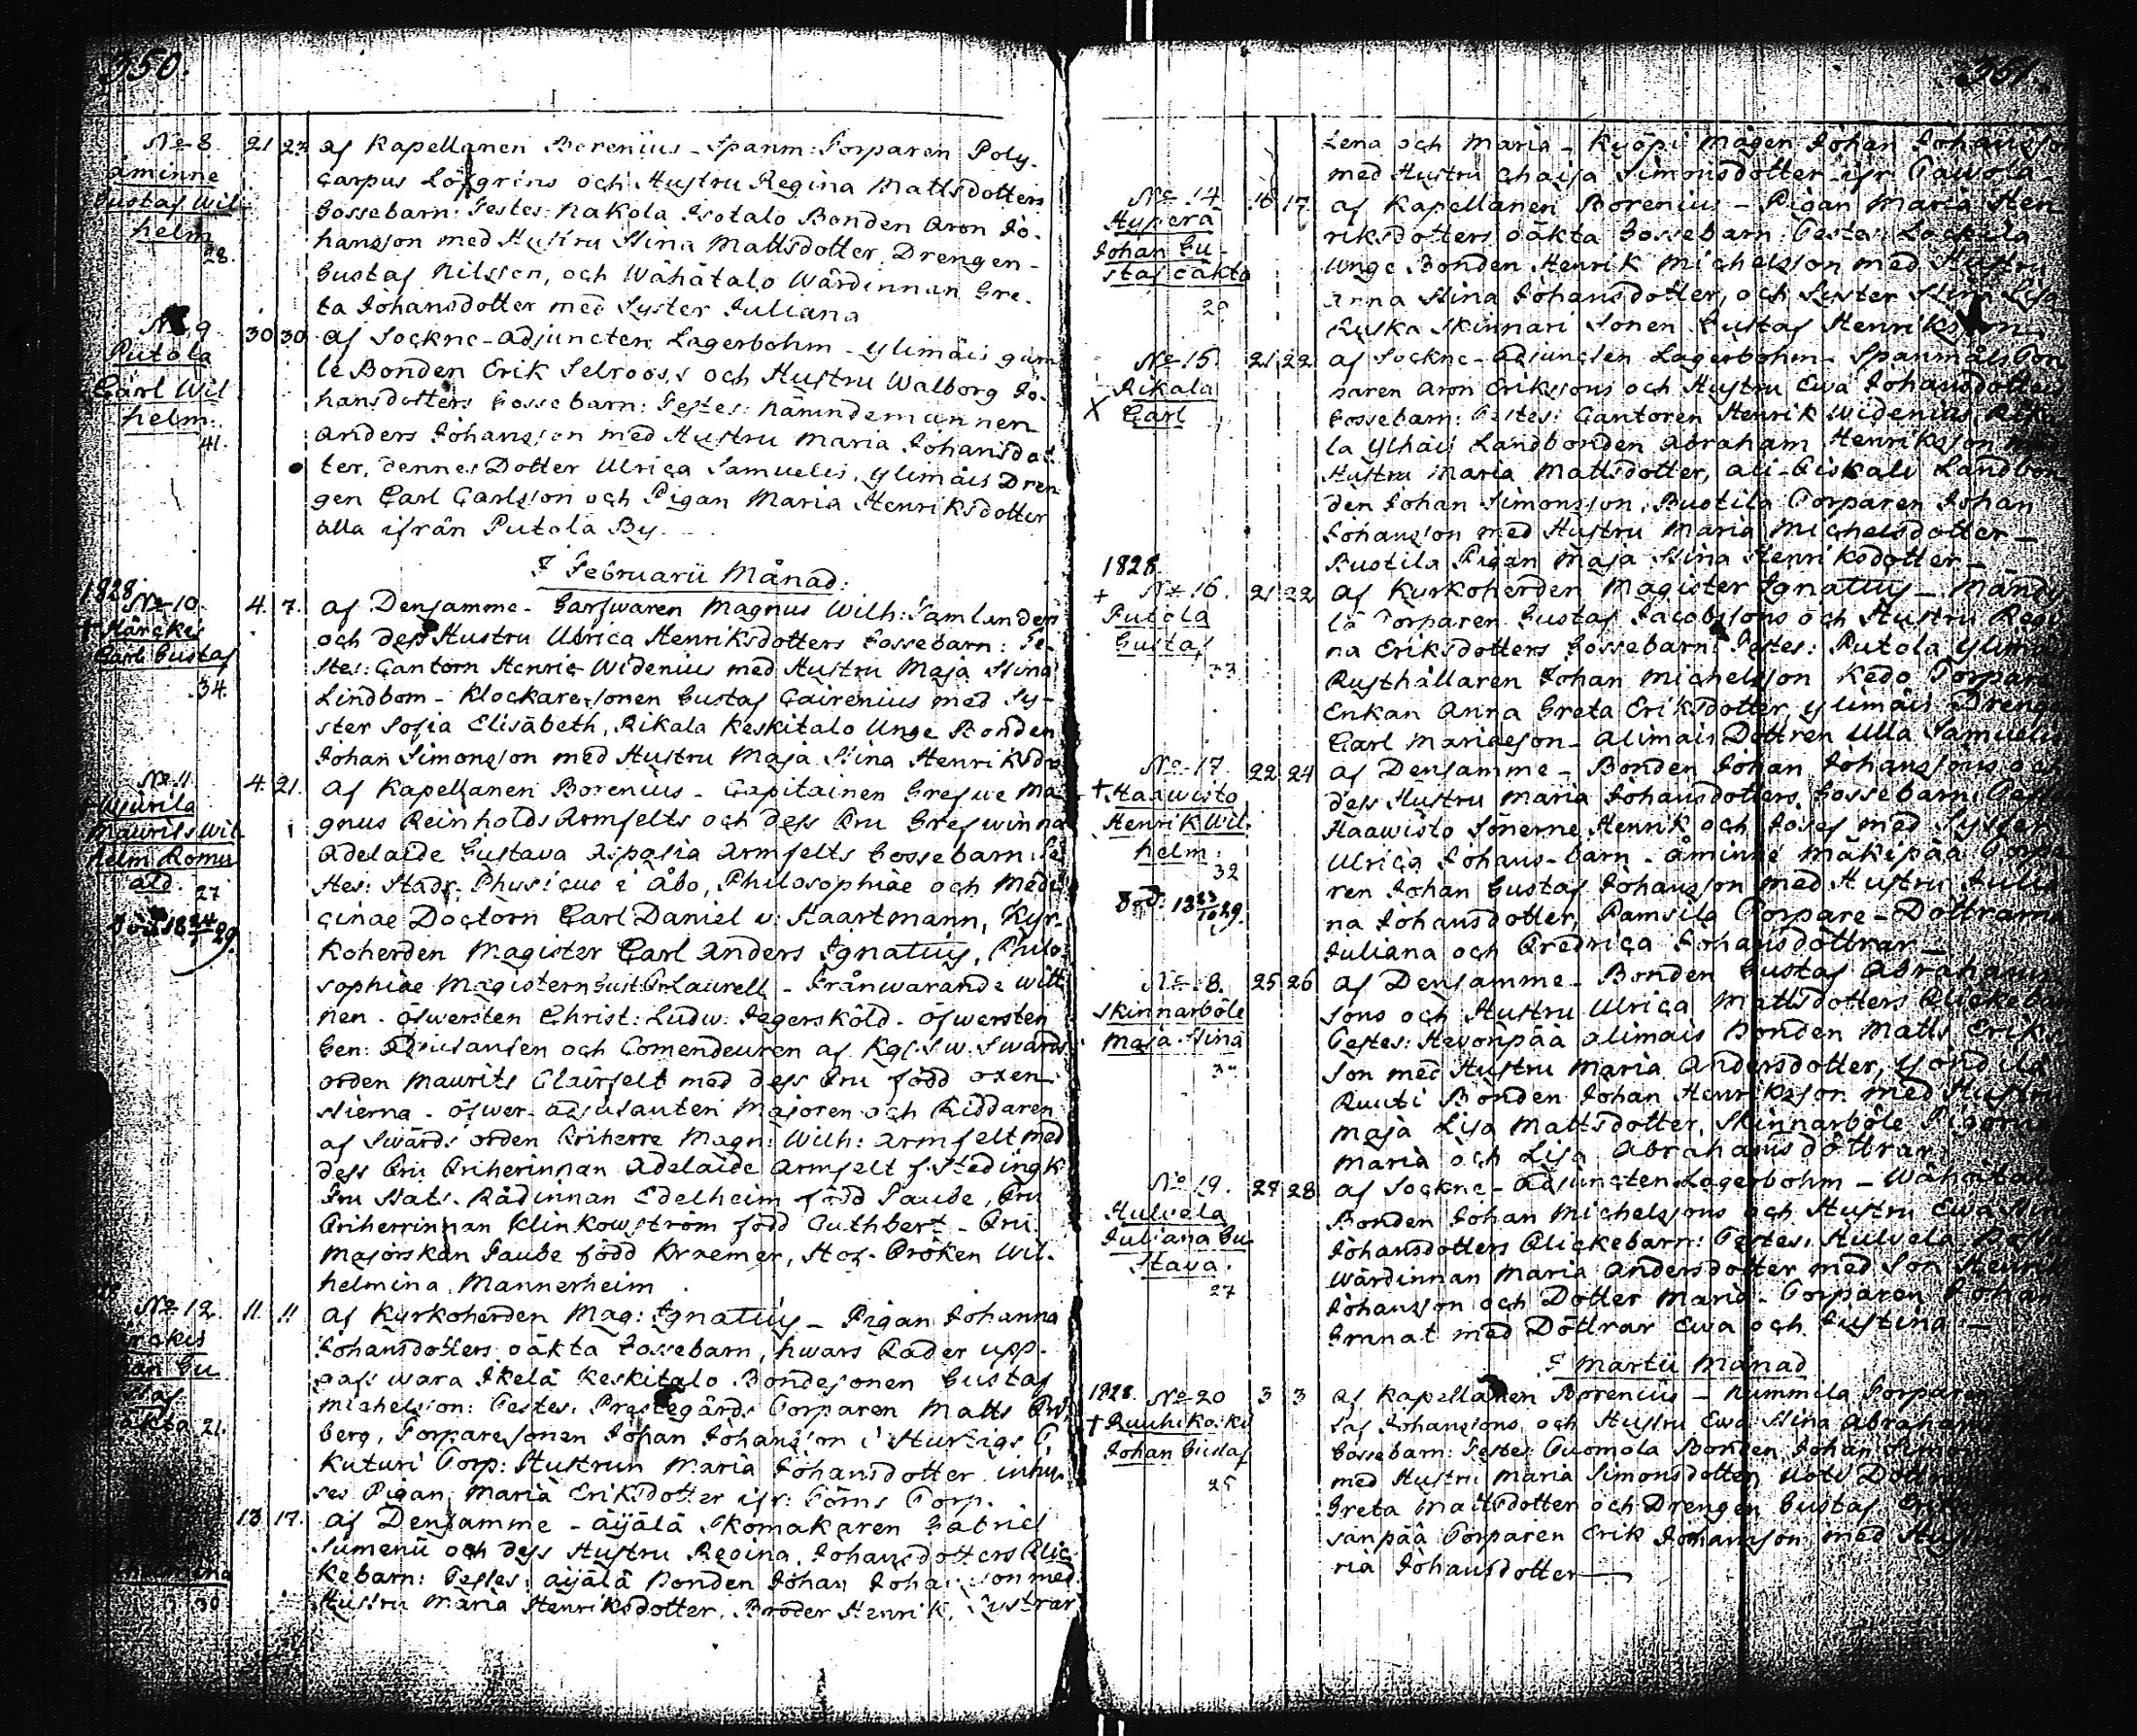 350.
No 8.
åminne
Gustaf Wil-
helm
28.
21 27 af Kapellanen Borenius - Spanm: Torparen Poly-
carpus Löfgrens och Hustru Regina Mattsdotters
Gossebarn: Testes: Nakola Isotalo Bonden Aron Jo-
hansson med Hustru Stina Mattsdotter, Drengen
Gustaf Nilsson, och Wähätalo Wärdinnan Gre-
ta Johansdotter med Syster Juliana
No 9
Putola
Carl Wil
helm.
41.
30 30 af Sockne-Adjuncten Lagerbohm - Ylimäis gam
le Bonden Erik Selrooss och Hustru Walborg Jo-
hansdotters Gossebarn: Testes: Nämndemannen
Anders Johansson med Hustru Maria Johansdot
ter, dennes Dotter Ulrica Samuelis, Ylimäis Dren
gen Carl Carlsson och Pigan Maria Henriksdotter
alla ifrån Putola By.
I Februarii Månad:
1828
No 10.
+ Härckes
Carl Gustaf
34.
4. 7. af Densamme - Garfwaren Magnus Wilh: Samlunden
och dess Hustru Ulrica Henriksdotters Gossebarn: Te-
stes: Cantorn Henric Widenius med Hustru Maja Stina
Lindbom - Klockaresonen Gustaf Cairenius med Sy-
ster Sofia Elisabeth, Rikala Keskitalo Unge Bonden
Johan Simonsson med Hustru Maja Stina Henriksdr
No 11
Wiurila
Maurits Wil
helm Romu
ald.
27
4. 21. af Kapellanen Borenius - Capitainen Grefwe Ma-
gnus Reinholds Armfelts och dess Fru Grefwinna
Adelaide Gustava Aspasia Armfelts Gossebarn: Te
stes: Stads Physicus i Åbo, Philosophiae och Medi
cinae Doctorn Carl Daniel v: Haartmann, Kyr-
koherden Magister Carl Anders Ignatius, Philo-
sophiae Magistern Gust: Fr: Laurell - Frånwarande Witt
nen - Öfwersten Christ: Ludw: Jegerskôld - Öfwersten
Gen: Adjutanten och Comendeuren af Kgl: Sw: Swärds
orden Maurits Clairfelt med dess Fru född Oxen-
stierna - Öfwer-Adjutanten Majoren och Riddaren
af Swärds orden Friherre Magn: Wilh: Armfelt med
dess Fru Friherinnan Adelaide Armfelt f. Stedingk
Fru Stats-Rådinnan Edelheim född Taube, Fru
Friherrinnan Klinkowström född Cuthbert - Fru
Majorskan Taube född Kræmer, Hof-Fröken Wil-
helmina Mannerheim
No 12.
21.
11 11 af Kyrkoherden Mag: Ignatius - Pigan Johanna
Johansdotters oäkta Gossebarn, hwars Fader upp-
gafs wara Ikelä Keskitalo Bondesonen Gustaf
Michelsson: Testes: Prestegårds Torparen Matts
berg, Torparesonen Johan Johansson i
Kuturi Torp: Hustrun Maria Johansdotter inhy-
ses Pigan Maria Eriksdotter ifr: Torp.
30
13 17. af Densamme - Äijälä Skomakaren Gabriel
Sumenii och dess Hustru Regina Johansdotters Flic-
kebarn: Testes: Äijälä Bonden Johan Johansson med
Hustru Maria Henriksdotter, Broder Henrik, Systrar
351.
Lena och Maria - Kyöpi Mågen Johan Johansson
med Hustru Chaisa Simonsdotter ifr: Pawola
No 14
Hyperä
Johan Gu-
staf oäkta
16 17 af Kapellanen Borenius - Pigan Maria Hen
riksdotters oäkta Gossebarn: Testes: Lockila
Unge Bonden Henrik Michelsson med Hustru
Anna Stina Johansdotter, och Syster Stina Lisa
Kuska Skinnari Sonen Gustaf Henriksson
No 15.
Rikala
X Carl
21 22 af Sockne-Adjuncten Lagerbohm - Spanmåls Tor
paren Aron Erikssons och Hustru Ewa Johansdotters
Gossebarn: Testes: Cantoren Henrik Widenius, Rika
la Ylhäis Landbonden Abraham Henriksson
Hustru Maria Mattsdotter, Ali-Piskali Landbon
den Johan Simonsson, Bustila Torparen Johan
Johansson med Hustru Maria Michelsdotter -
Bustila Pigan Maja Stina Henriksdotter -
1828
+ No 16.
Putola
Gustaf
33
21 22 af Kyrkoherden Magister Ignatius - Mändy
lä Torparen Gustaf Jacobssons och Hustru Regi
na Eriksdotters Gossebarn: Testes: Putola Ylimäis
Rusthållaren Johan Michelsson Kedo Torpare
Enkan Anna Greta Eriksdotter, Ylimäis Drengen
Carl Mariaeson - Alimäis Dottren Ulla Samuelis
No 17
+ Haawisto
Henrik Wil-
helm.
32
22 24 af Densamme - Bonden Johan Johanssons och
dess Hustru Maria Johansdotters Gossebarn: Testes
Haawisto Sönerne Henrik och Josef med Syster
Ulrica Johans-barn - Åminne Mäkipää Torpa
ren Johan Gustaf Johansson med Hustru Julia
na Johansdotter, Pamsila Torpare-Döttrarna
Juliana och Fredrica Johansdöttrar -
No 18.
Skinnarböle
Maja Stina
25 26 af Densamme - Bonden Gustaf Abrahams
sons och Hustru Ulrica Mattsdotters Flickebarn
Testes: Hevonpää Alimäis Bonden Matts Eriks
son med Hustru Maria Andersdotter, Yöndilä
Ruuti Bonden Johan Henriksson med Hustru
Maja Lisa Mattsdotter, Skinnarböle Pigorna
Maria och Lisa Abrahamsdöttrar
No 19.
Hulvela
Juliana Gu-
stava.
27
27 28 af Sockne-Adjuncten Lagerbohm - Wähätalo
Bonden Johan Michelssons och Hustru Ewa Stina
Johansdotters Flickebarn: Testes: Hulvela
Wärdinnan Maria Andersdotter med Son Henrik
Johansson och Dotter Maria - Torparen Johan
Grönat med Döttrar Ewa och Justina -
I Martii Månad
1828. No 20
+ Ruuhikoski
Johan Gustaf
25
3 3 af Kapellanen Borenius - Kummila Torparen
Johanssons och Hustru Ewa Stina Abrahams
Gossebarn: Testes: Tuomola Bonden Johan Simons
med Hustru Maria Simonsdotter, Uoti Dottren
Greta Mattsdotter och Drengen Gustaf
sänpää Torparen Erik Johansson med Hustru
ria Johansdotter -